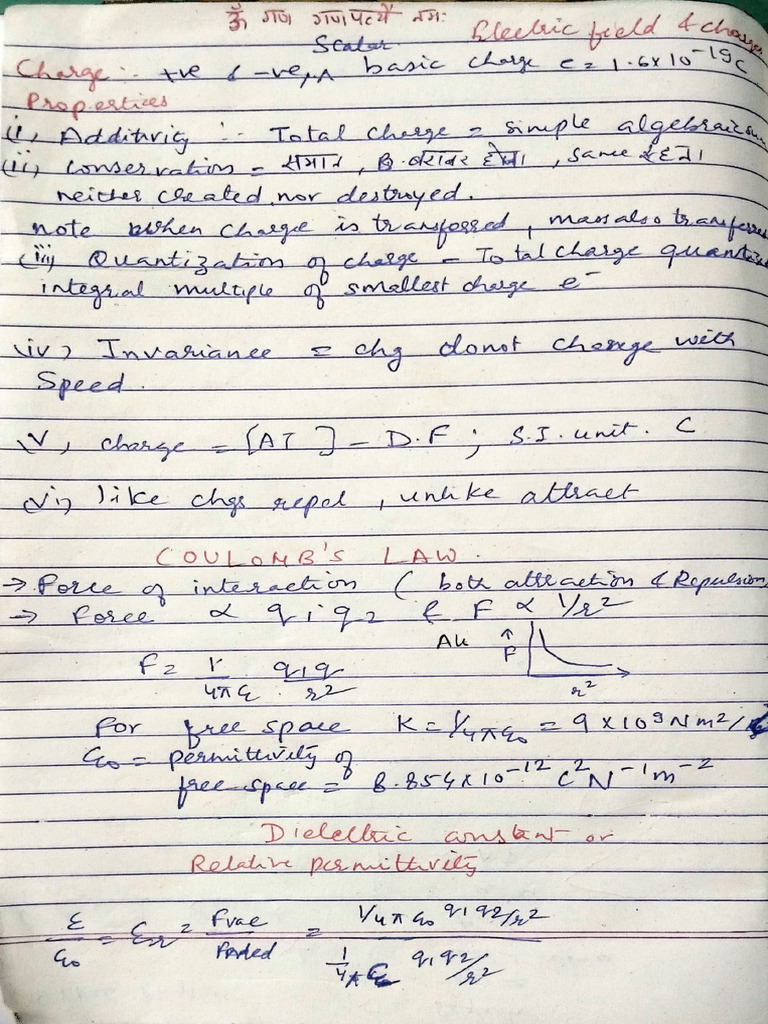 ॐ गण गणपत्यै नमः
Electric field & charges
Scalar
Charge :- +ve & -ve, A basic charge e = 1.6 x 10⁻¹⁹C
Properties
(i) Additivity :- Total charge = simple algebraic sum
(ii) conservation = समान, B. बराबर होना, same रहना
neither created nor destroyed.
note when charge is transferred, mass also transferred
(iii) Quantization of charge - Total charge quantized
integral multiple of smallest charge e⁻
(iv) Invariance = chg donot change with
Speed.
(v) charge = [AT] - D.F ; S.I. unit. C
(vi) like chgs repel, unlike attract
COULOMB'S LAW.
→ Force of interaction (both attraction & Repulsion)
→ Force ∝ q1q2 & F ∝ 1/r²
F r²
F = 1/4πε q1q/r²
For free space K = 1/4πε0 = 9 x 10⁹ Nm²/
ε0 = permittivity of
free space = 8.854 x 10⁻¹² C²N⁻¹m⁻²
Dielectric constant or
Relative permittivity
ε/ε0 = εr = Fvac/ = 1/4πε0 q1q2/r² / 1/4πε q1q2/r²